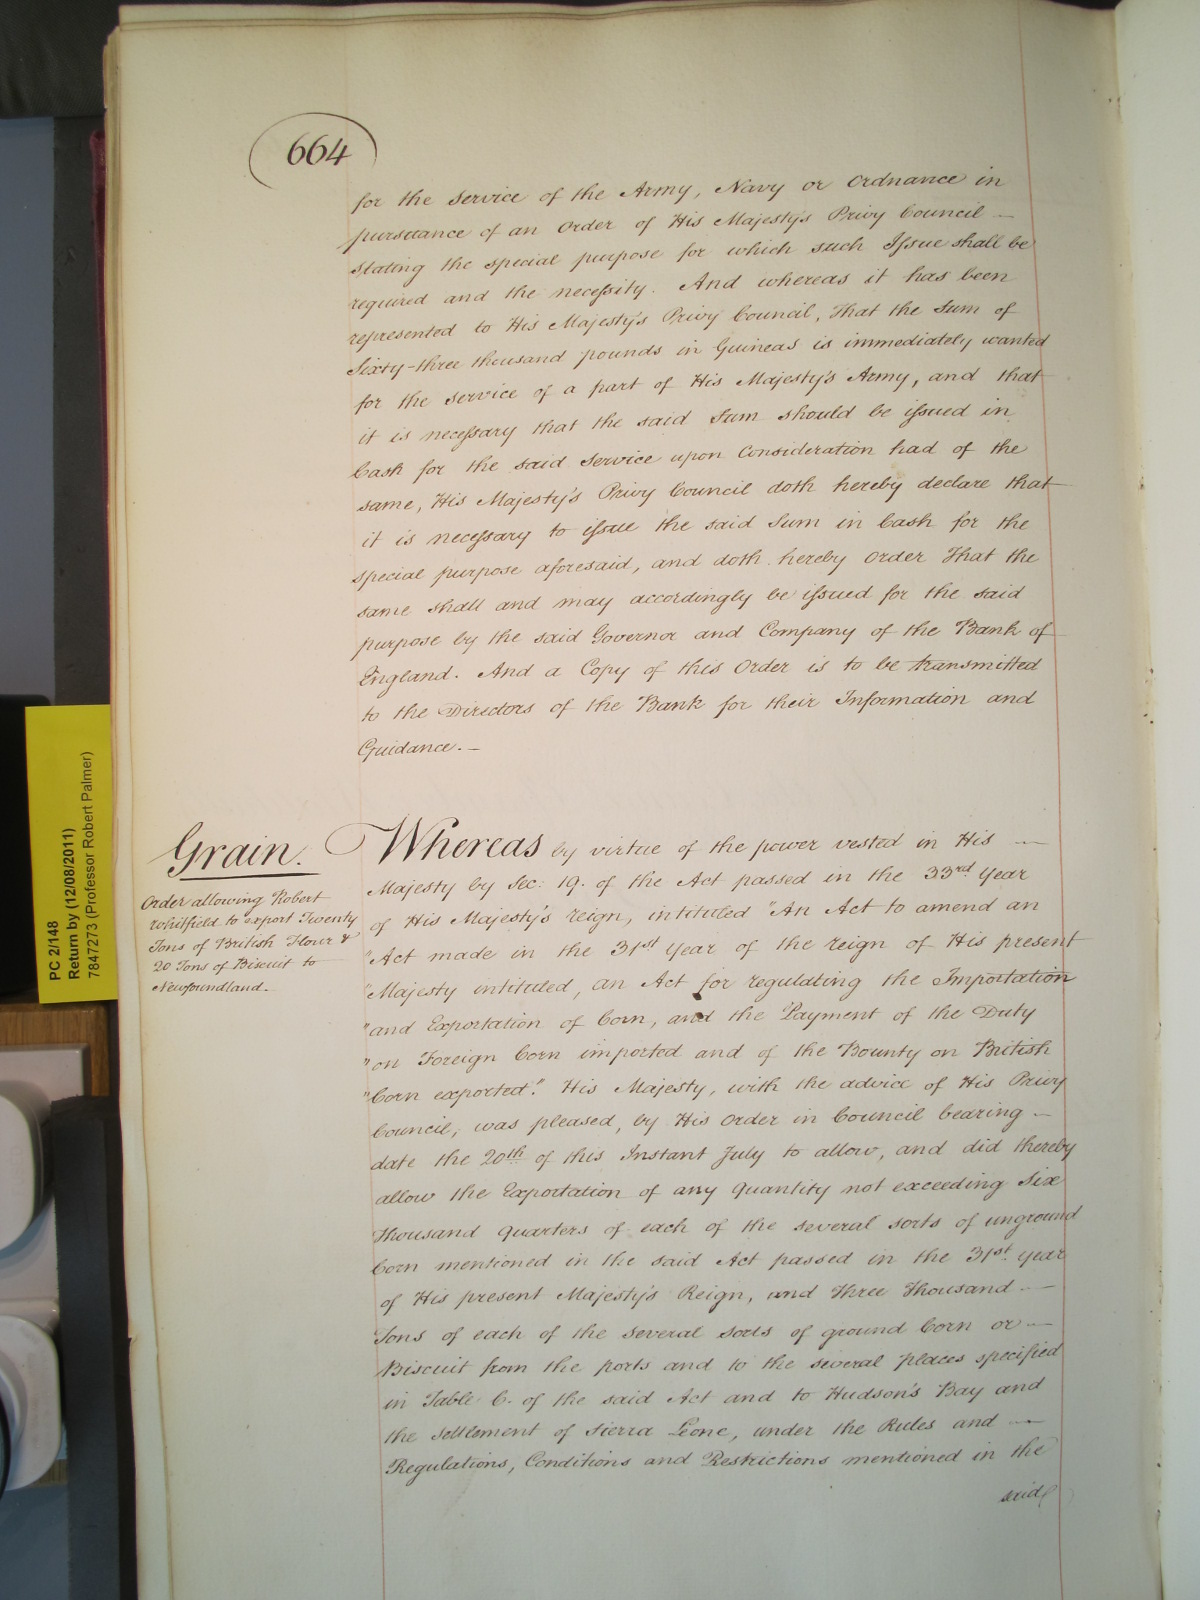 664
for the Service of the Army, Navy or Ordnance in
pursuance of an Order of His Majesty's Privy Council —
stating the special purpose for which such Issue shall be
required and the necessity. And whereas it has been
represented to His Majesty's Privy Council, That the Sum of
Sixty-three thousand pounds in Guineas is immediately wanted
for the Service of a part of His Majesty's Army, and that
it is necessary that the said Sum should be issued in
Cash for the said Service upon Consideration had of the
same, His Majesty's Privy Council doth hereby declare that
it is necessary to issue the said Sum in Cash for the
special purpose aforesaid, and doth hereby Order That the
same shall and may accordingly be issued for the said
purpose by the said Governor and Company of the Bank of
England. And a Copy of this Order is to be transmitted
to the Directors of the Bank for their Information and
Guidance. —
Grain.
Order allowing Robert
Whitfield to export Twenty
Tons of British Flour &
20 Tons of Biscuit to
Newfoundland.
Whereas by virtue of the power vested in His —
Majesty by Sec: 19. of the Act passed in the 33rd Year
of His Majesty's reign, intituled "An Act to amend an
"Act made in the 31st Year of the reign of His present
"Majesty intituled, an Act for regulating the Importation
"and Exportation of Corn, and the Payment of the Duty
"on Foreign Corn imported and of the Bounty on British
"Corn exported". His Majesty, with the advice of His Privy
Council, was pleased, by His Order in Council bearing —
date the 20th of this Instant July to allow, and did thereby
allow the Exportation of any Quantity not exceeding Six
Thousand Quarters of each of the several sorts of unground
Corn mentioned in the said Act passed in the 31st Year
of His present Majesty's Reign, and Three Thousand —
Tons of each of the several sorts of ground Corn or —
Biscuit from the ports and to the several places specified
in Table C. of the said Act and to Hudson's Bay and
the Settlement of Sierra Leone, under the Rules and —
Regulations, Conditions and Restrictions mentioned in the
said
PC 2/148
Return by (12/08/2011)
7847273 (Professor Robert Palmer)